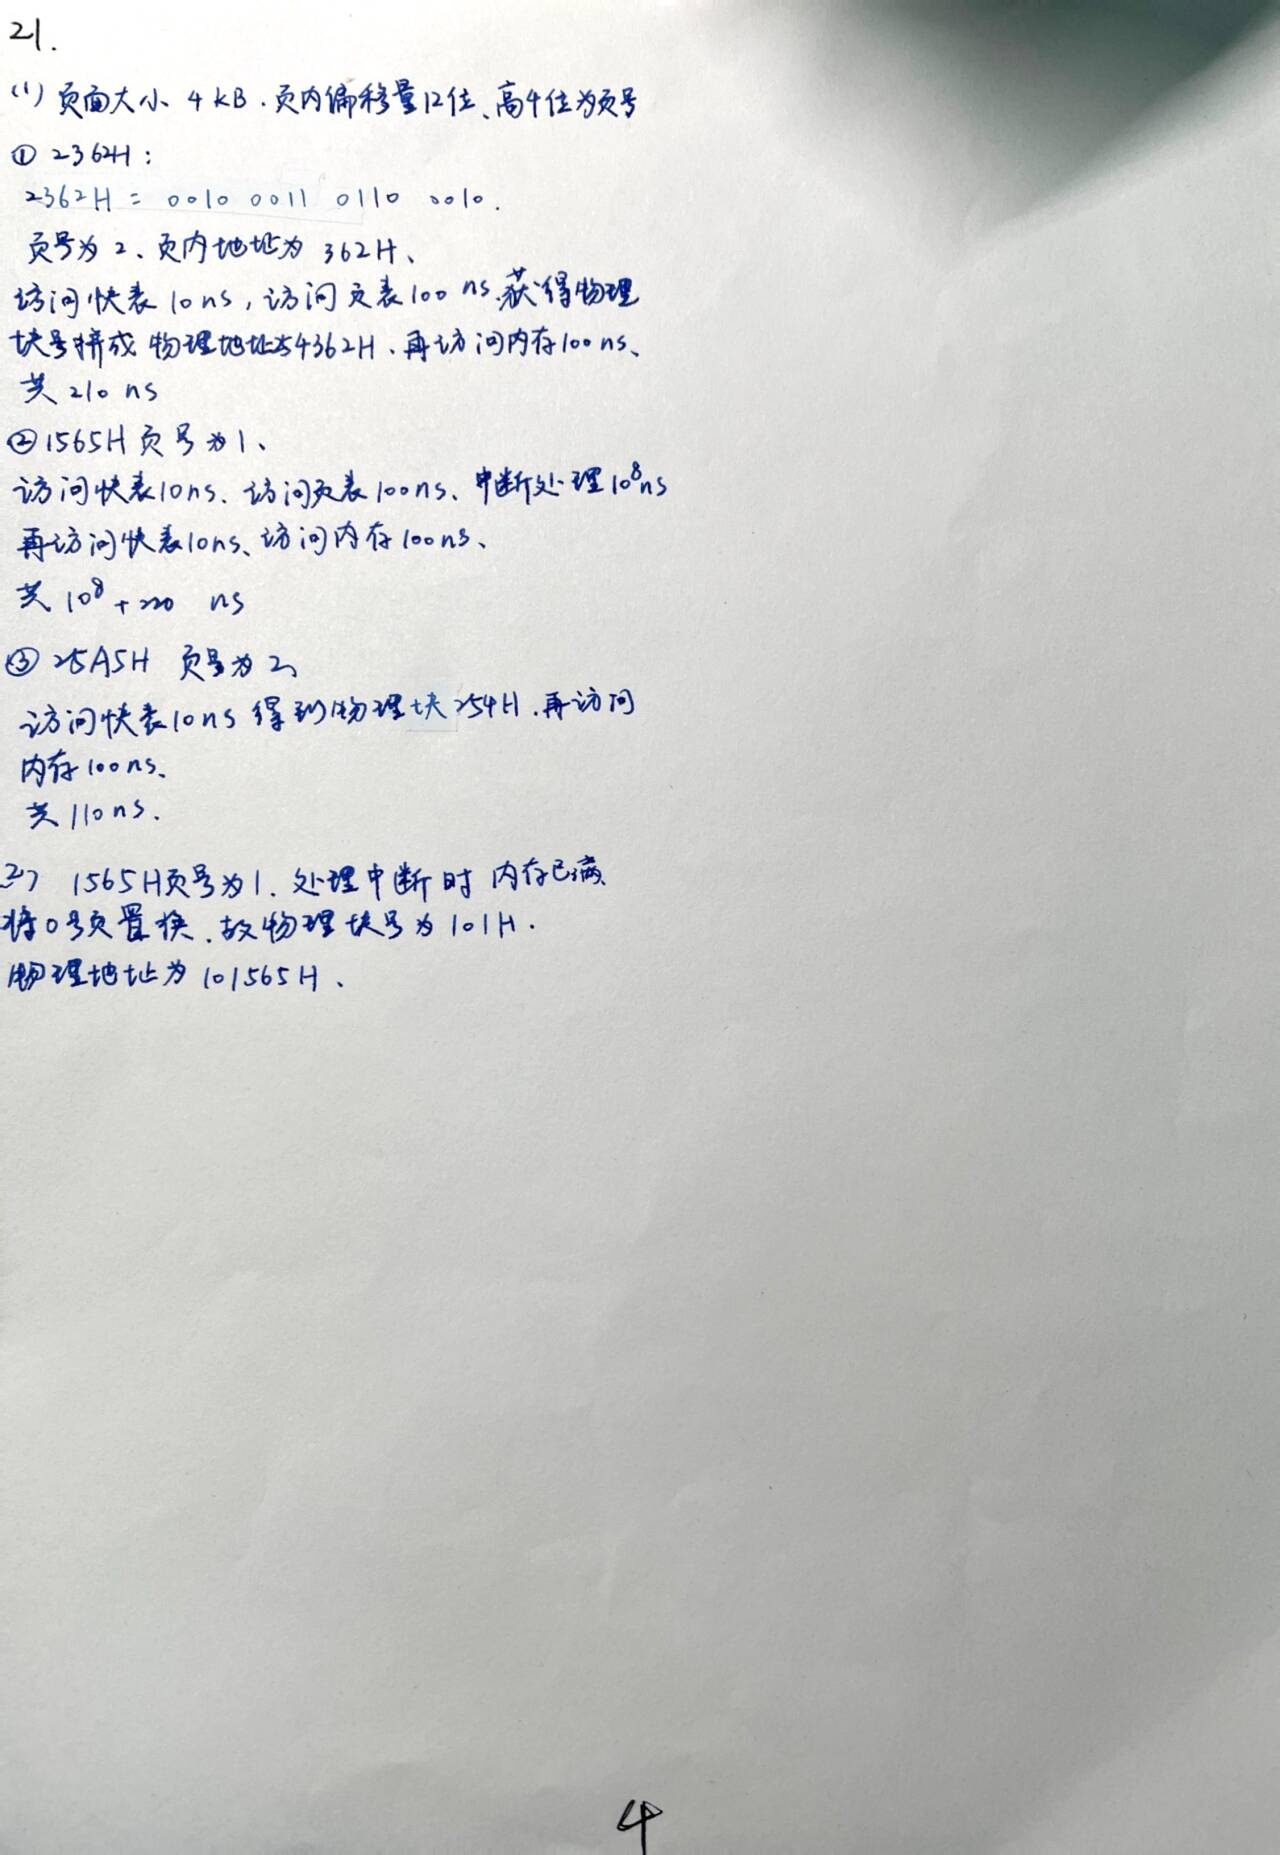 21.
(1) 页面大小 4KB.页内偏移量12位、高4位为页号
① 2362H:
2362H = 0010 0011 0110 0010.
页号为2、页内地址为 362H、
访问快表10ns,访问页表100ns.获得物理
块号拼成物理地址254362H、再访问内存100ns、
共210ns
② 1565H页号为1、
访问快表10ns、访问页表100ns、中断处理10⁸ns
再访问快表10ns、访问内存100ns、
共10⁸+220 ns
③ 25A5H 页号为2、
访问快表10ns得到物理块254H.再访问
内存100ns、
共110ns.
2) 1565H页号为1.处理中断时内存已满、
将0号页置换、故物理块号为101H.
物理地址为101565H、
4